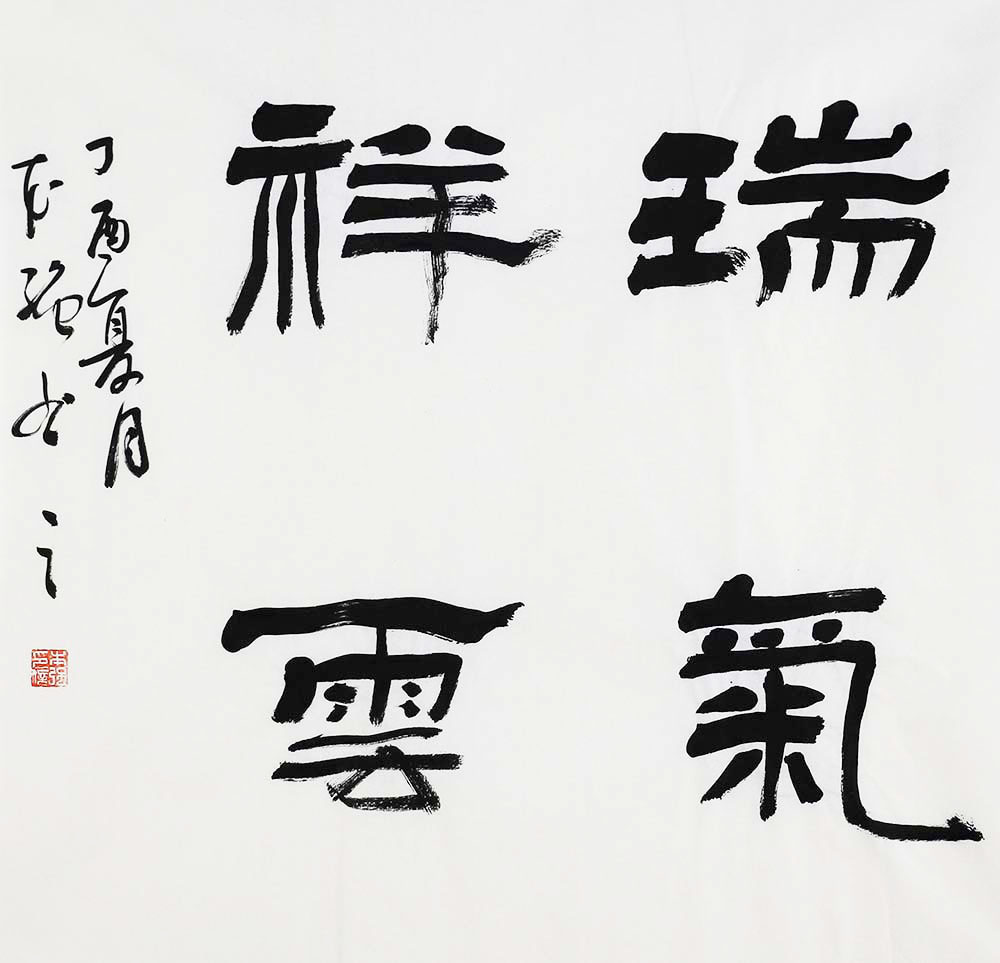 瑞氣
祥雲
丁酉夏月
強书